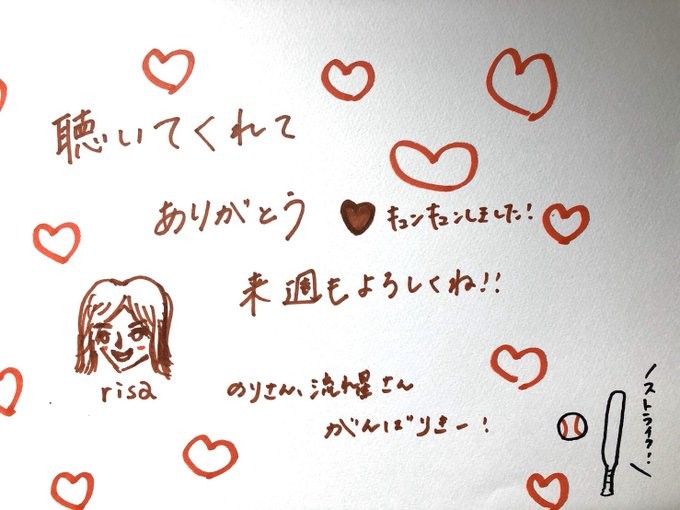 聴いてくれて
ありがとう
キュンキュンしました!
来週もよろしくね!!
risa
のりさん、流れ星さん
がんばりきー!
ストライク!